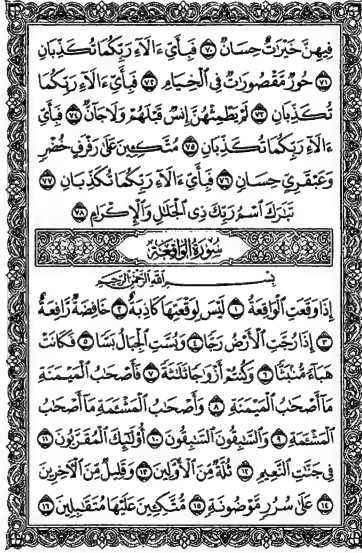 فِيهِنَّ خَيْرَٰتٌ حِسَانٌ ٧٠ فَبِأَيِّ ءَالَآءِ رَبِّكُمَا تُكَذِّبَانِ
٧١ حُورٌ مَّقْصُورَٰتٌ فِي ٱلْخِيَامِ ٧٢ فَبِأَيِّ ءَالَآءِ رَبِّكُمَا
تُكَذِّبَانِ ٧٣ لَمْ يَطْمِثْهُنَّ إِنسٌ قَبْلَهُمْ وَلَا جَآنٌّ ٧٤ فَبِأَيِّ
ءَالَآءِ رَبِّكُمَا تُكَذِّبَانِ ٧٥ مُتَّكِـِٔينَ عَلَىٰ رَفْرَفٍ خُضْرٍ
وَعَبْقَرِيٍّ حِسَانٍ ٧٦ فَبِأَيِّ ءَالَآءِ رَبِّكُمَا تُكَذِّبَانِ ٧٧
تَبَٰرَكَ ٱسْمُ رَبِّكَ ذِي ٱلْجَلَٰلِ وَٱلْإِكْرَامِ ٧٨
سُورَةُ الوَاقِعَةِ
بِسْمِ ٱللَّهِ ٱلرَّحْمَٰنِ ٱلرَّحِيمِ
إِذَا وَقَعَتِ ٱلْوَاقِعَةُ ١ لَيْسَ لِوَقْعَتِهَا كَاذِبَةٌ ٢ خَافِضَةٌ رَّافِعَةٌ
٣ إِذَا رُجَّتِ ٱلْأَرْضُ رَجًّا ٤ وَبُسَّتِ ٱلْجِبَالُ بَسًّا ٥ فَكَانَتْ
هَبَآءً مُّنۢبَثًّا ٦ وَكُنتُمْ أَزْوَٰجًا ثَلَٰثَةً ٧ فَأَصْحَٰبُ ٱلْمَيْمَنَةِ
مَآ أَصْحَٰبُ ٱلْمَيْمَنَةِ ٨ وَأَصْحَٰبُ ٱلْمَشْـَٔمَةِ مَآ أَصْحَٰبُ
ٱلْمَشْـَٔمَةِ ٩ وَٱلسَّٰبِقُونَ ٱلسَّٰبِقُونَ ١٠ أُو۟لَٰٓئِكَ ٱلْمُقَرَّبُونَ ١١
فِي جَنَّٰتِ ٱلنَّعِيمِ ١٢ ثُلَّةٌ مِّنَ ٱلْأَوَّلِينَ ١٣ وَقَلِيلٌ مِّنَ ٱلْءَاخِرِينَ
١٤ عَلَىٰ سُرُرٍ مَّوْضُونَةٍ ١٥ مُّتَّكِـِٔينَ عَلَيْهَا مُتَقَٰبِلِينَ ١٦